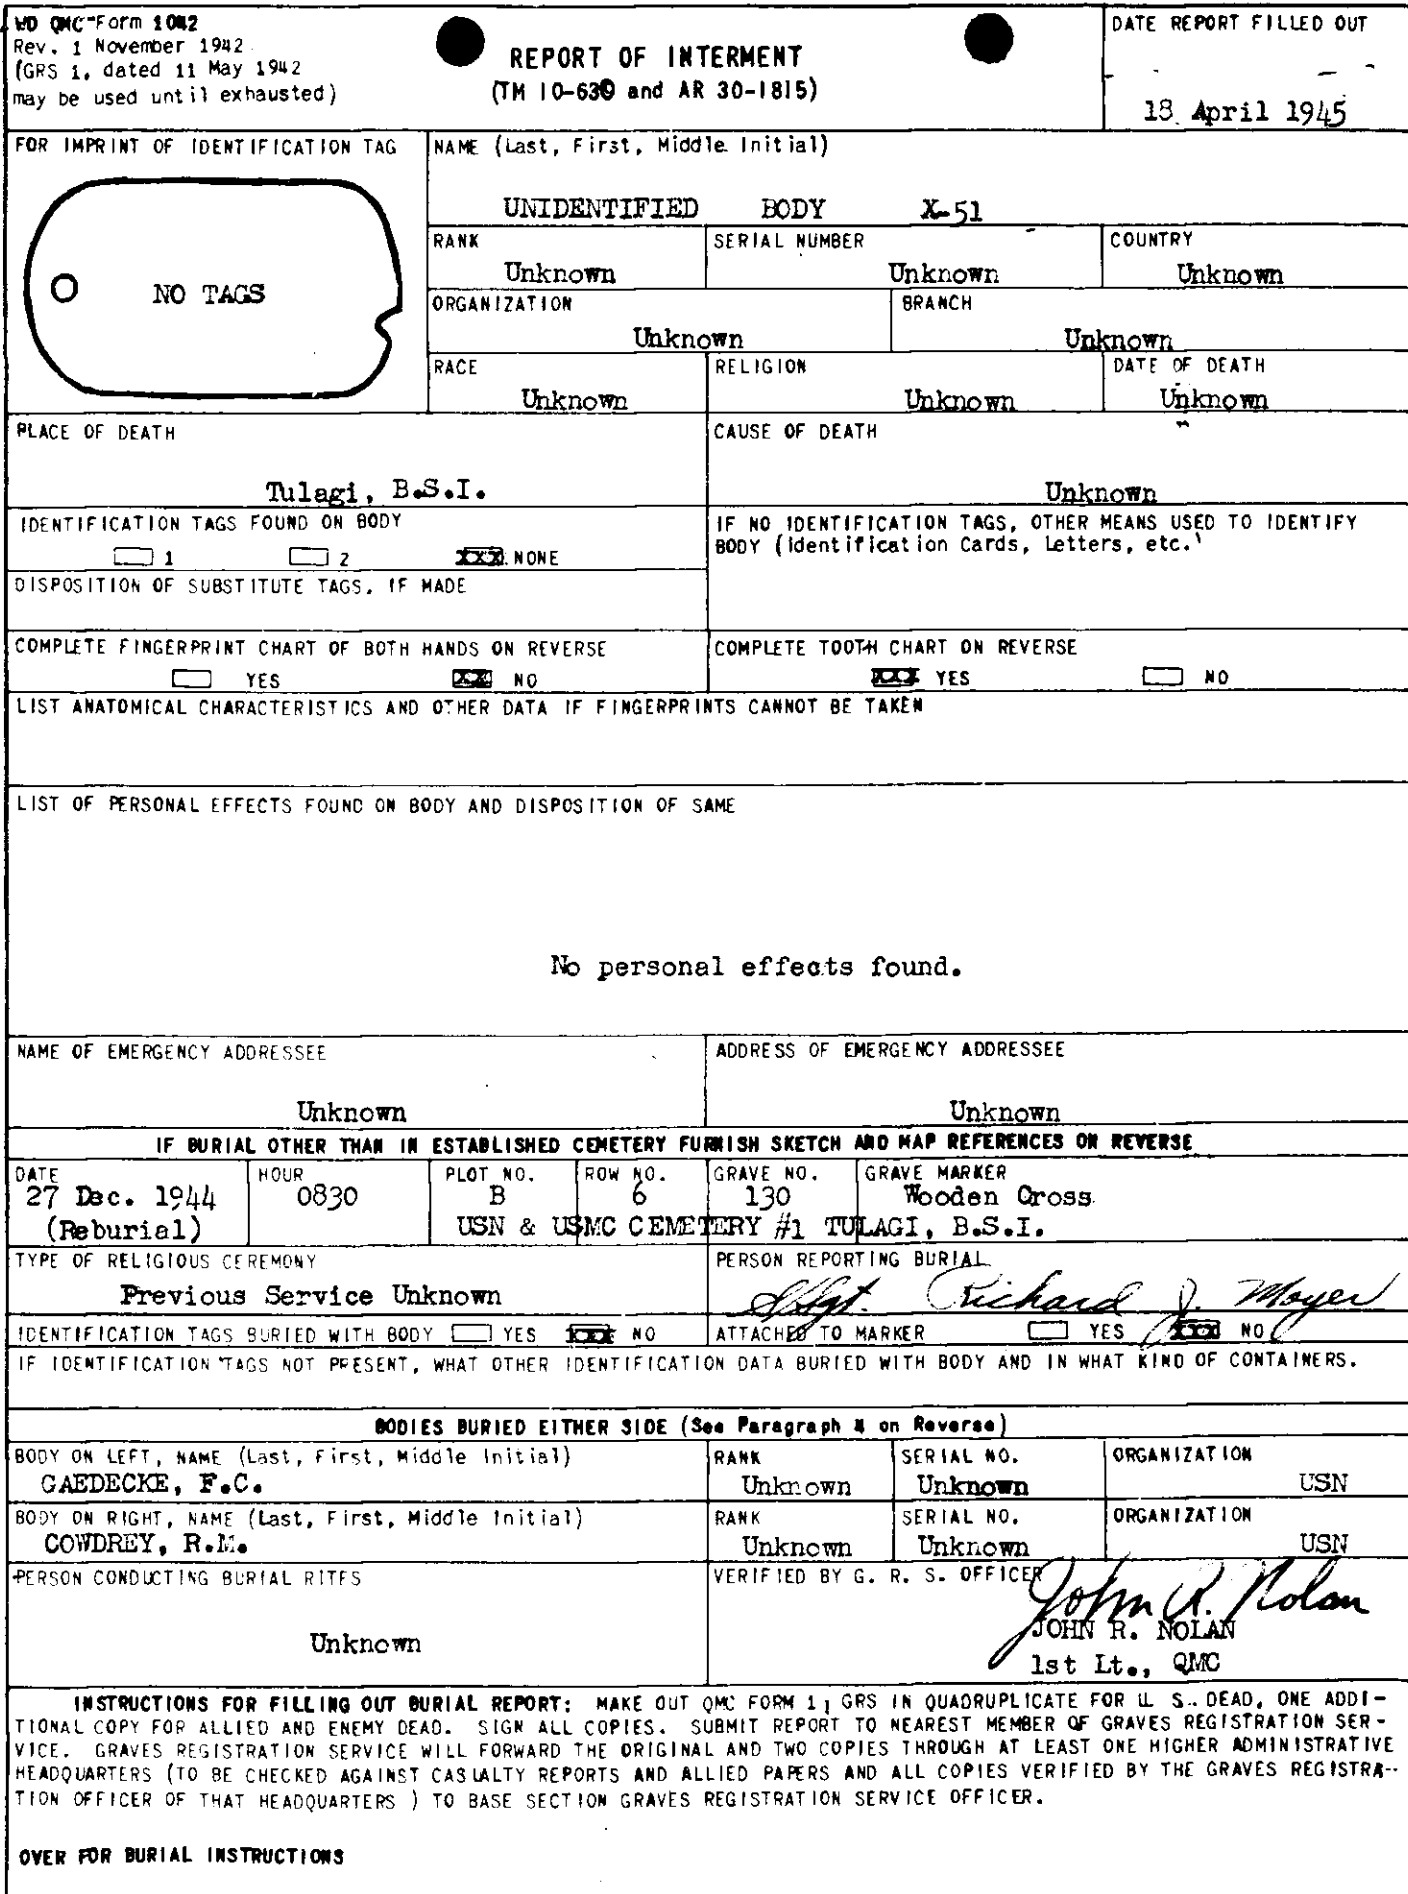 WD QMC Form 1042
Rev. 1 November 1942
(GRS 1, dated 11 May 1942
may be used until exhausted)
REPORT OF INTERMENT
(TM 10-630 and AR 30-1815)
DATE REPORT FILLED OUT
18 April 1945
FOR IMPRINT OF IDENTIFICATION TAG
NO TAGS
NAME (Last, First, Middle Initial)
UNIDENTIFIED BODY X-51
RANK SERIAL NUMBER COUNTRY
Unknown Unknown Unknown
ORGANIZATION BRANCH
Unknown Unknown
RACE RELIGION DATE OF DEATH
Unknown Unknown Unknown
PLACE OF DEATH CAUSE OF DEATH
Tulagi, B.S.I. Unknown
IDENTIFICATION TAGS FOUND ON BODY
1 2 XXX NONE
IF NO IDENTIFICATION TAGS, OTHER MEANS USED TO IDENTIFY
BODY (Identification Cards, Letters, etc.)
DISPOSITION OF SUBSTITUTE TAGS, IF MADE
COMPLETE FINGERPRINT CHART OF BOTH HANDS ON REVERSE
YES XX NO
COMPLETE TOOTH CHART ON REVERSE
XXX YES NO
LIST ANATOMICAL CHARACTERISTICS AND OTHER DATA IF FINGERPRINTS CANNOT BE TAKEN
LIST OF PERSONAL EFFECTS FOUND ON BODY AND DISPOSITION OF SAME
No personal effects found.
NAME OF EMERGENCY ADDRESSEE ADDRESS OF EMERGENCY ADDRESSEE
Unknown Unknown
IF BURIAL OTHER THAN IN ESTABLISHED CEMETERY FURNISH SKETCH AND MAP REFERENCES ON REVERSE
DATE HOUR PLOT NO. ROW NO. GRAVE NO. GRAVE MARKER
27 Dec. 1944 0830 B 6 130 Wooden Cross
(Reburial) USN & USMC CEMETERY #1 TULAGI, B.S.I.
TYPE OF RELIGIOUS CEREMONY PERSON REPORTING BURIAL
Previous Service Unknown SSgt. Richard J. Moyer
IDENTIFICATION TAGS BURIED WITH BODY YES XXX NO ATTACHED TO MARKER YES XXX NO
IF IDENTIFICATION TAGS NOT PRESENT, WHAT OTHER IDENTIFICATION DATA BURIED WITH BODY AND IN WHAT KIND OF CONTAINERS.
BODIES BURIED EITHER SIDE (See Paragraph 4 on Reverse)
BODY ON LEFT, NAME (Last, First, Middle Initial) RANK SERIAL NO. ORGANIZATION
GAEDECKE, F.C. Unknown Unknown USN
BODY ON RIGHT, NAME (Last, First, Middle Initial) RANK SERIAL NO. ORGANIZATION
COWDREY, R.M. Unknown Unknown USN
PERSON CONDUCTING BURIAL RITES VERIFIED BY G. R. S. OFFICER
Unknown
John R. Nolan
JOHN R. NOLAN
1st Lt., QMC
INSTRUCTIONS FOR FILLING OUT BURIAL REPORT: MAKE OUT QMC FORM 1, GRS IN QUADRUPLICATE FOR U. S. DEAD, ONE ADDI-
TIONAL COPY FOR ALLIED AND ENEMY DEAD. SIGN ALL COPIES. SUBMIT REPORT TO NEAREST MEMBER OF GRAVES REGISTRATION SER-
VICE. GRAVES REGISTRATION SERVICE WILL FORWARD THE ORIGINAL AND TWO COPIES THROUGH AT LEAST ONE HIGHER ADMINISTRATIVE
HEADQUARTERS (TO BE CHECKED AGAINST CASUALTY REPORTS AND ALLIED PAPERS AND ALL COPIES VERIFIED BY THE GRAVES REGISTRA-
TION OFFICER OF THAT HEADQUARTERS ) TO BASE SECTION GRAVES REGISTRATION SERVICE OFFICER.
OVER FOR BURIAL INSTRUCTIONS